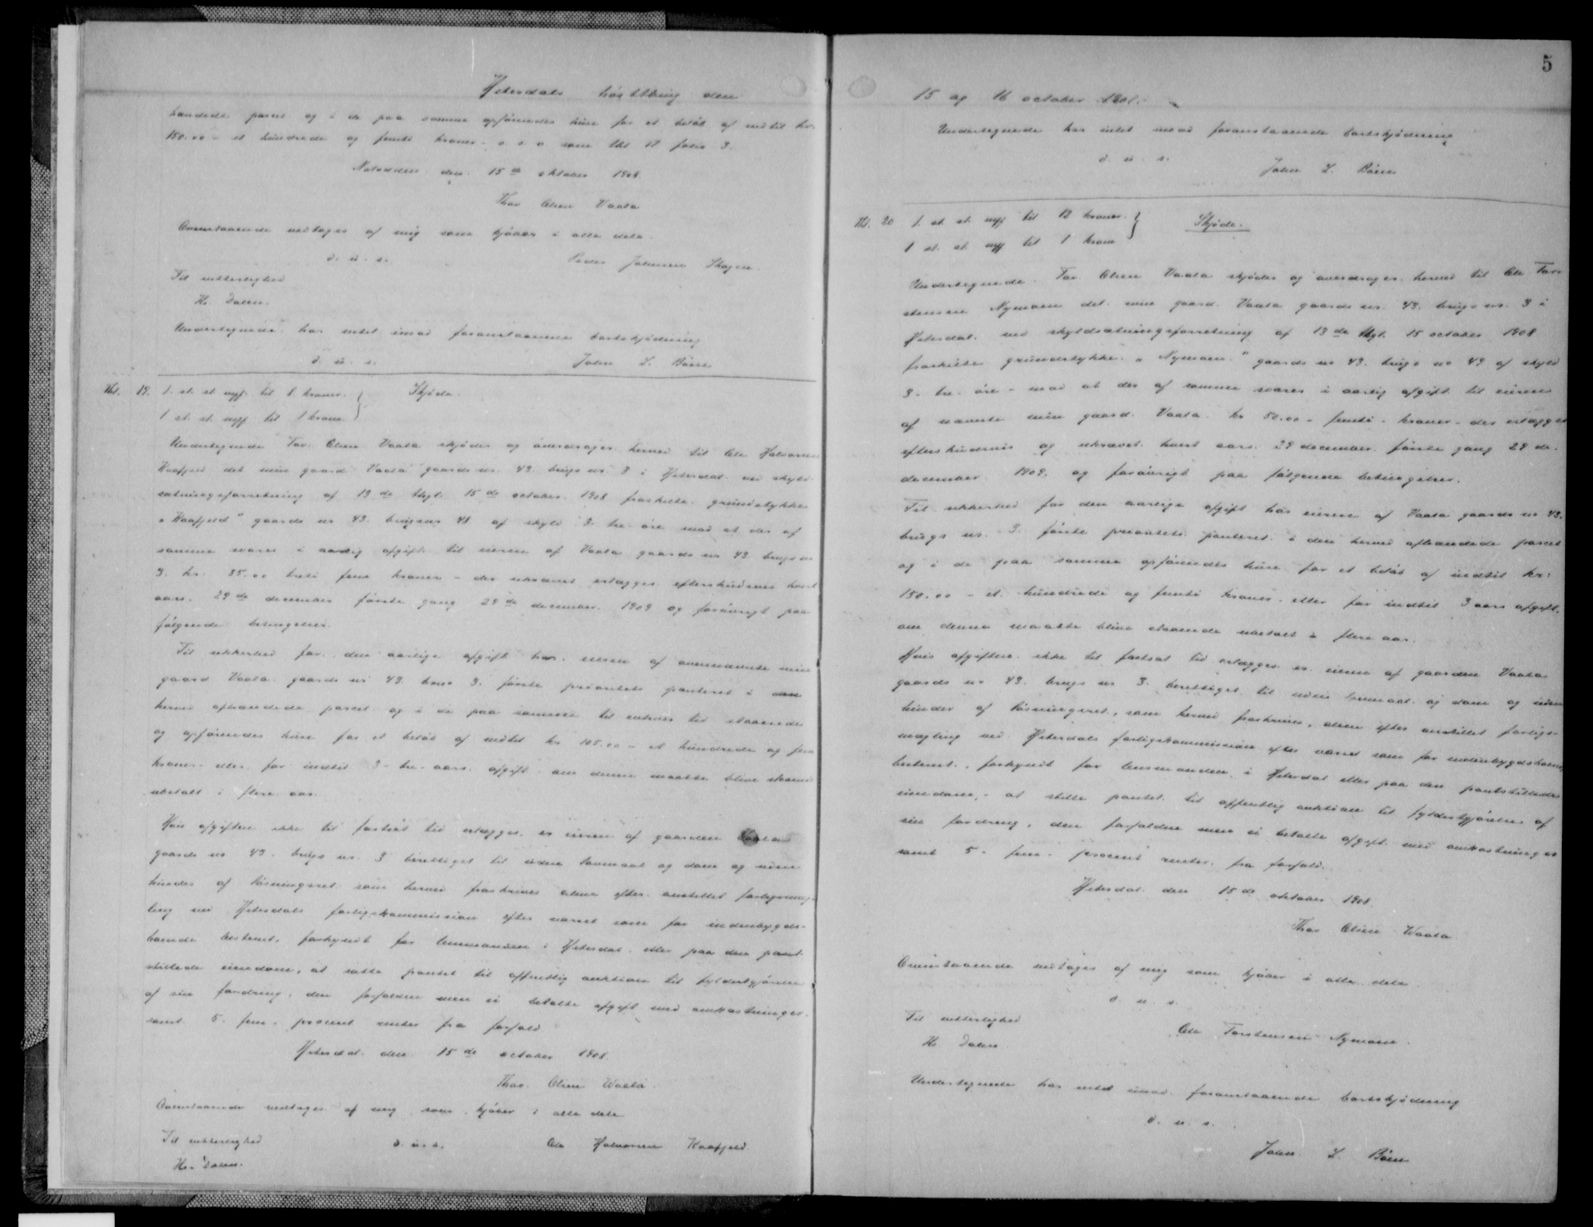 Hitersdals høstthing den
handede parcel og i de paa samme opførendes huse for et beløb af indtil kr.
150.00 – et hundrede og femti kroner. o. s. v. som thl 17 folio 3.
Notodden den 15 de oktober 1908
Thor Olsen Vaala
Ovenstaaende vedtages af mig som kjøber i alle dele.
d. u. s.
Peder Johnsen Skogen
Til vitterlighed
H. Dalen.
Undertegnede har intet imod foranstaaende bortskjødning
d. u. s. John L. Bøen
Thl. 19. 1. st. st. mpf. til 6 kroner.
1 st. st. mpf til 1 krone } Skjøde.
Undertegnede Tor Olsen Vaala skjøder og overdrager herved til Ole Halvorsen
Haafjeld det mine gaard Vaala gaards nr. 43. brugs nr. 3 i Hitersdal ved skyld-
sætningsforretning af 13 de thgl. 15 de october 1908 fraskilte grundstykke
"Haafjeld" gaards nr 43. brugsnr 48 af skyld 3. tre øre mod at der af
samme svares i aarlig afgift til eieren af Vaala gaards nr 43 brugs nr
3. kr. 35.00 treti fem kroner – der ukrævet erlægges efterskudsvis hvert
aars 29 de december første gang 29 de december 1909 og forøvrigt paa
følgende betingelser.
Til sikkerhed for den aarlige afgift har eieren af ovennævnte min
gaard Vaala gaards nr 43. brugs 3. første prioritets panteret i den
herved afhændede parcel og i de paa samme til enhver tid staaende
og opførendes huse for et beløb af indtil kr 105.00 – et hundrede og fem
kroner eller for indtil 3 – tre aars afgift om denne maatte blive staaende
ubetalt i flere aar.
Hvis afgiften ikke til fastsat tid erlægges, er eieren af gaarden Vaala
gaards nr 43. brugs nr. 3 berettiget til uden søxmaal og dom og uden
hinder af løsningsret som herved fraskrives alene efter anstillet forligsmæg-
ling ved Hitersdals forligskommission efter varsel som for indenbygds-
boende bestemt, forkyndt for lensmanden i Hitersdal eller paa den pant-
stillede eiendom, at sætte pantet til offentlig auktion til fyldestgjørelse
af sin fordring, den forfaldne men ei betalte afgift med omkostninger
samt 5. fem. procent renter fra forfald
Hitersdal den 15 de october 1908
Thor Olsen Waala.
Ovenstaaende vedtages af mig som kjøber i alle dele
Til vitterlighed d. u. s. Ole Halvorsen Haafjeld
H. Dalen.
5
15 og 16 october 1908.
Undertegnede har intet imod foranstaaende bortskjødning
d. u. s.
John L. Bøen
Thl. 20 1. st. st. mpf til 12 kroner.
1 st. st. mpf til 1 krone } Skjøde.
Undertegnede Tor Olsen Vaala skjøder og overdrager herved til Ole Tor-
stensen Nymoen det mine gaard Vaala gaards nr. 43. brugs nr. 3 i
Hitersdal ved skyldsætningsforretning af 13 de thgl. 15 october 1908
fraskilte grundstykke "Nymoen" gaards nr 43. brugs nr 49 af skyld
3. tre øre – mod at der af samme svares i aarlig afgift til eieren
af nævnte min gaard Vaala kr 50.00 – femti – kroner – der erlægges
efterskudsvis og ukrævet hvert aars 29 december første gang 29 de
december 1909. og forøvrigt paa følgende betingelser.
Til sikkerhed for den aarlige afgift har eieren af Vaala gaards nr 43.
brugs nr. 3. første prioritets panteret i den herved afhændede parcel
og i de paa samme opførendes huse for et beløb af indtil kr:
150.00 – et hundrede og femti kroner eller for indtil 3 aars afgift
om denne maatte blive staaende ubetalt i flere aar.
Hvis afgiften ikke til fastsat tid erlægges er eieren af gaarden Vaala
gaards nr 43. brugs nr 3. berettiget til uden søxmaal og dom og uden
hinder af løsningsret, som herved fraskrives, alene efter anstillet forligs-
mægling ved Hitersdals forligskommission efter varsel som for indenbygdsboende
bestemt, forkyndt for lensmanden i Hitersdal eller paa den pantstillede
eiendom, – at stille pantet til offentlig auktion til fyldestgjørelse af
sin fordring, den forfaldne men ei betalte afgift med omkostninger
samt 5. fem. procent renter fra forfald.
Hitersdal den 15 de oktober 1908
Thor Olsen Waala
Ovenstaaende vedtages af mig som kjøber i alle dele
d. u. s.
Til vitterlighed Ole Torstensen Nymoen.
H. Dalen
Undertegnede har intet imod foranstaaende bortskjødning
d. u. s.
John L. Bøen